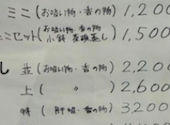 ミニ(お吸い物・香の物) 1,200
ミニセット(お吸い物・香の物 小鉢 茶碗蒸し) 1,500
し 並(お吸い物・香の物) 2,200
上( 〃 ) 2,600
特(肝吸・香の物) 3200